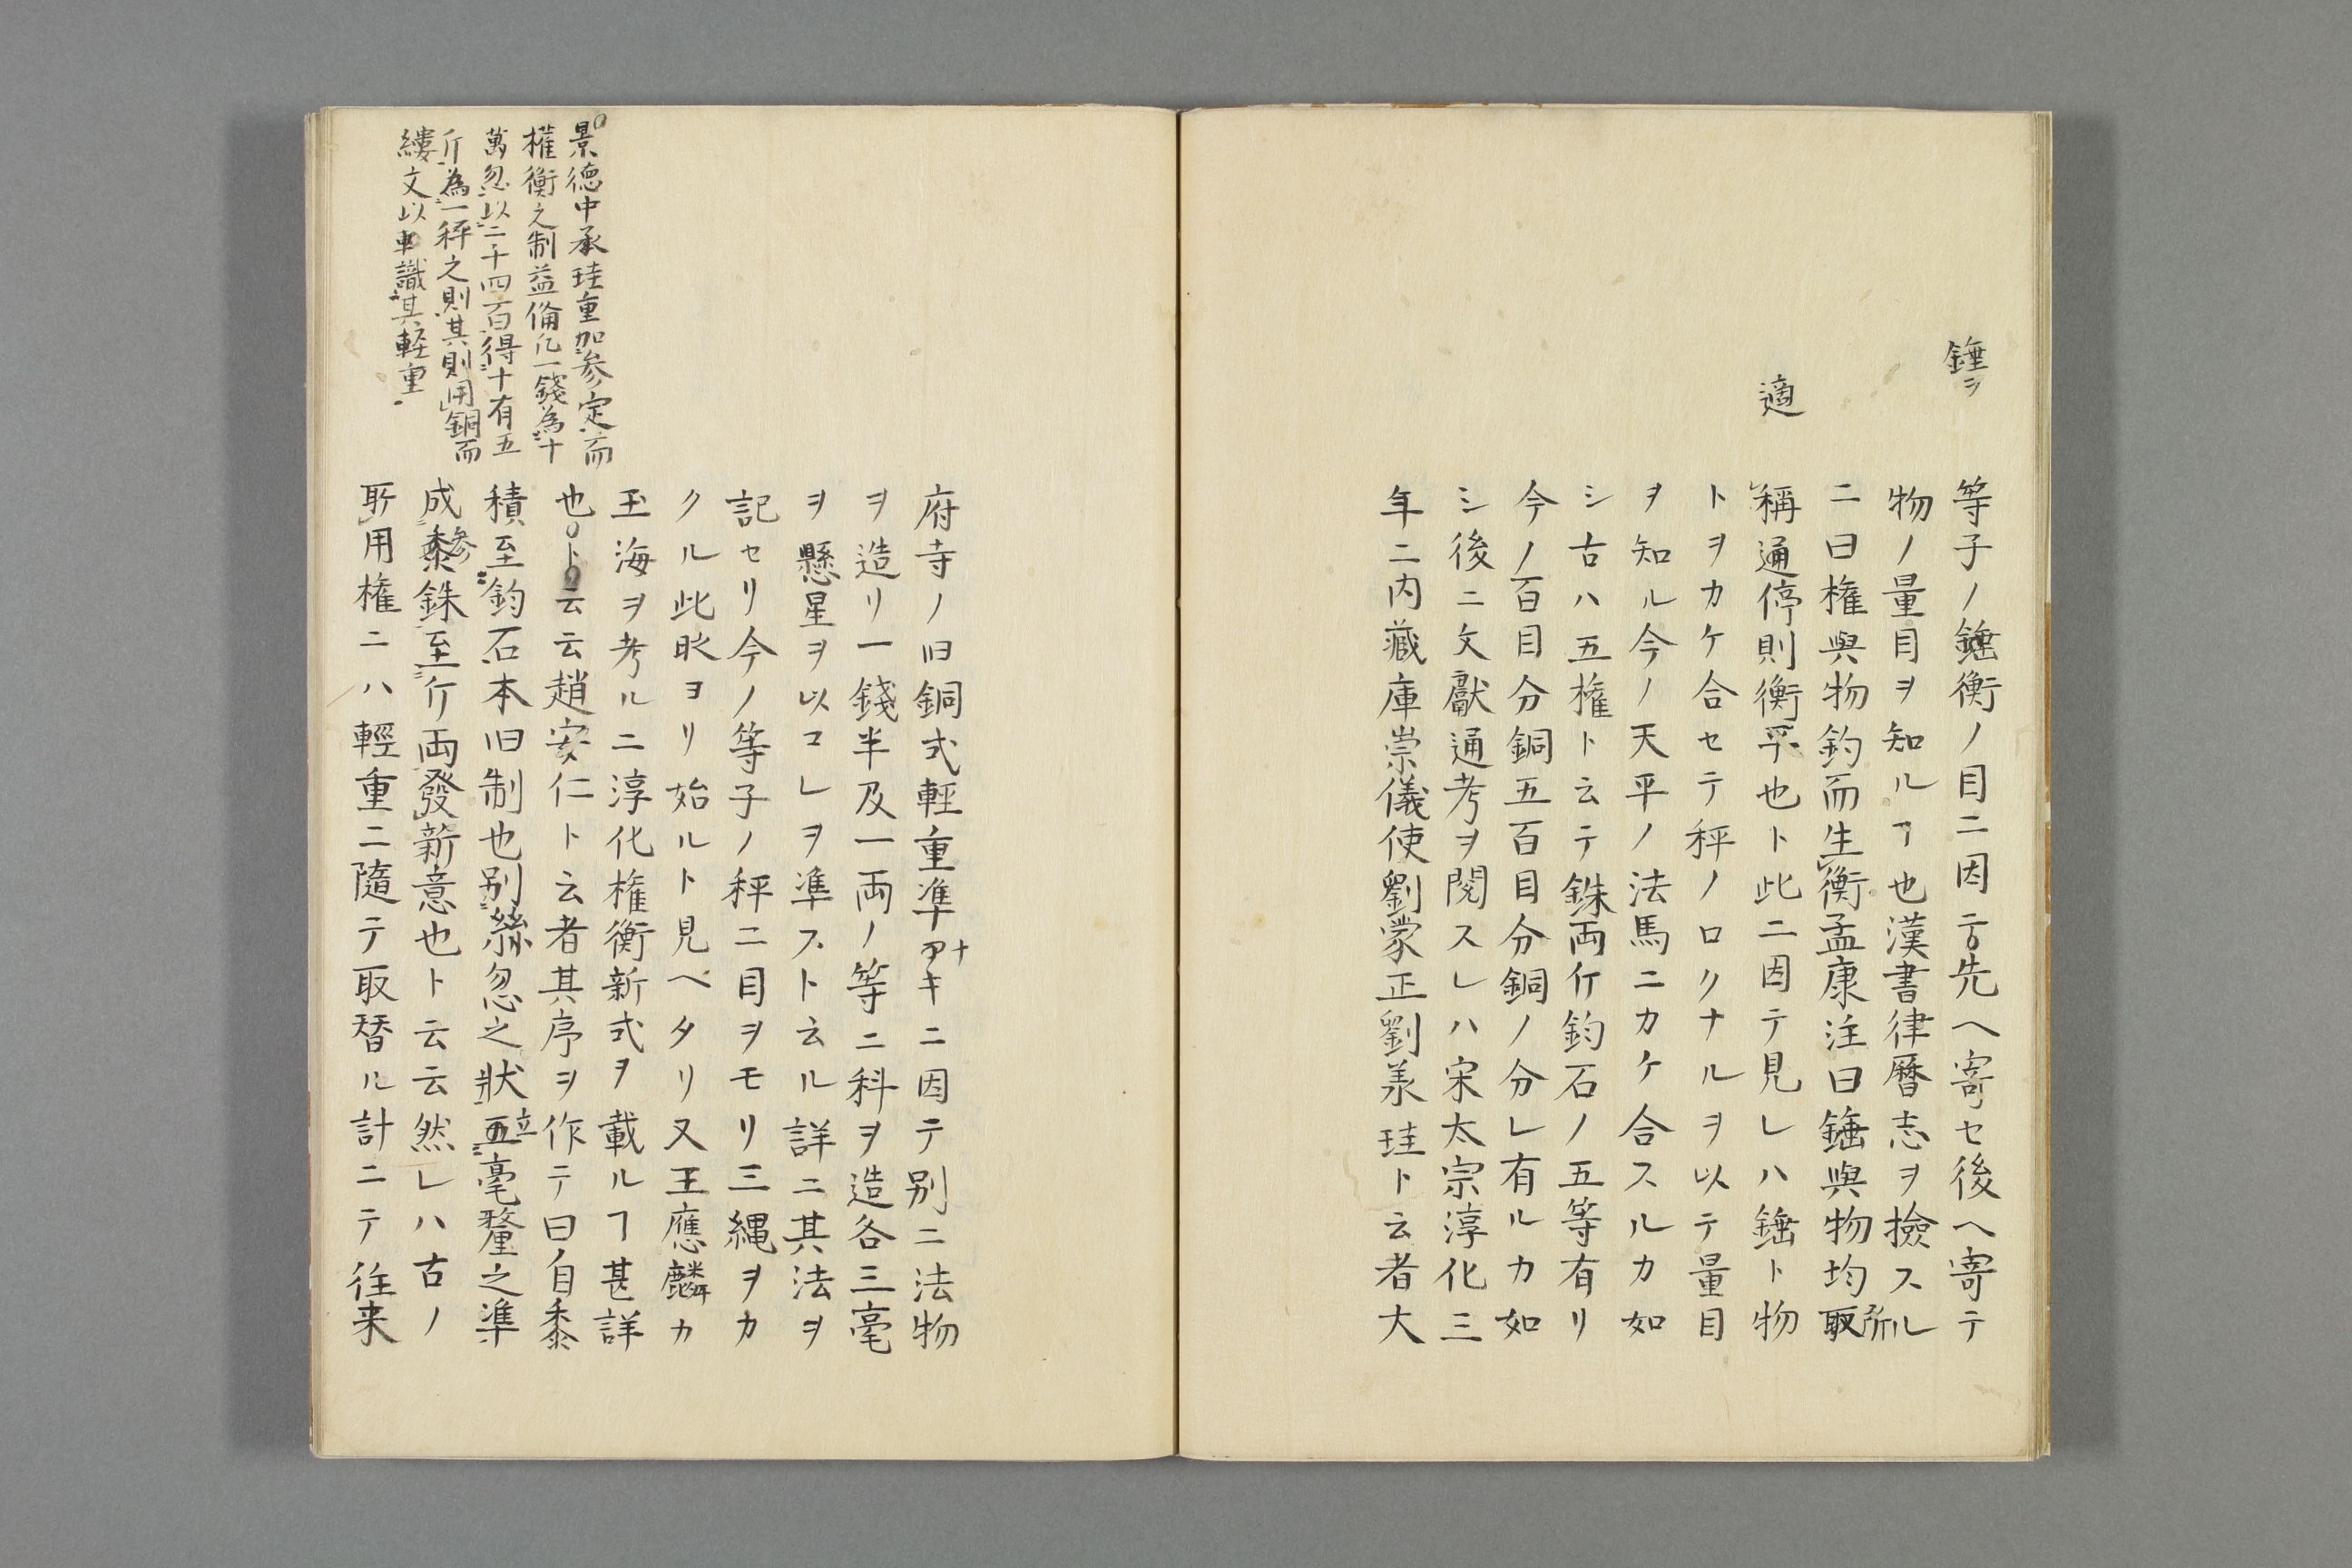 錘ヲ
適
等子ノ錘衡ノ目ニ因テ先ヘ寄セ後ヘ寄テ
物ノ量目ヲ知ルヿ也漢書律曆志ヲ撿スル
ニ曰權與物鈞而生衡孟康注曰錘與物均所取
稱通停則衡平也ト此ニ因テ見レハ錘ト物
トヲカケ合セテ秤ノロクナルヲ以テ量目
ヲ知ル今ノ天平ノ法馬ニカケ合スルカ如
シ古ハ五權ト云テ銖両斤鈞石ノ五等有リ
今ノ百目分銅五百目分銅ノ分レ有ルカ如
シ後ニ文獻通考ヲ閲スレハ宋太宗淳化三
年ニ内藏庫崇儀使劉蒙正劉羕珪ト云者大
景德中承珪重加参定而
權衡之制益俻凡一錢為十
萬忽以二千四百得十有五
斤為一秤之則其則用銅而
縷文以識其軽重
府寺ノ旧銅式輕重準ナキニ因テ別ニ法物
ヲ造リ一錢半及一両ノ等ニ科ヲ造各三毫
ヲ懸星ヲ以コレヲ準スト云ル詳ニ其法ヲ
記セリ今ノ等子ノ秤ニ目ヲモリ三縄ヲカ
クル此眤ヨリ始ルト見ヘタリ又王應麟カ
玉海ヲ考ルニ淳化權衡新式ヲ載ルヿ甚詳
也ト云云趙安仁ト云者其序ヲ作テ曰自黍
積至鈞石本旧制也別絲忽之狀立毫釐之準
成参銖至斤両發新意也ト云云然レハ古ノ
所用權ニハ輕重ニ隨テ取替ル計ニテ往来